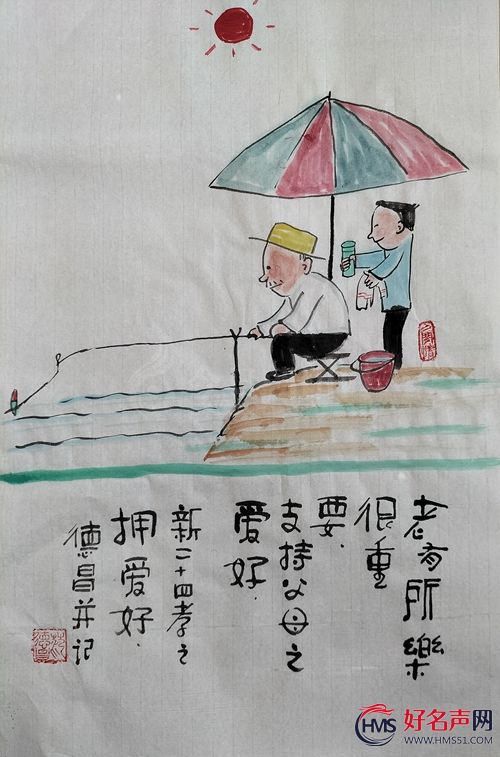 老有所樂
很重
要.
支持父母之
爱好.
新二十四孝之
拥爱好.
德昌并记
HMS
好名声网
WWW.HMS51.COM